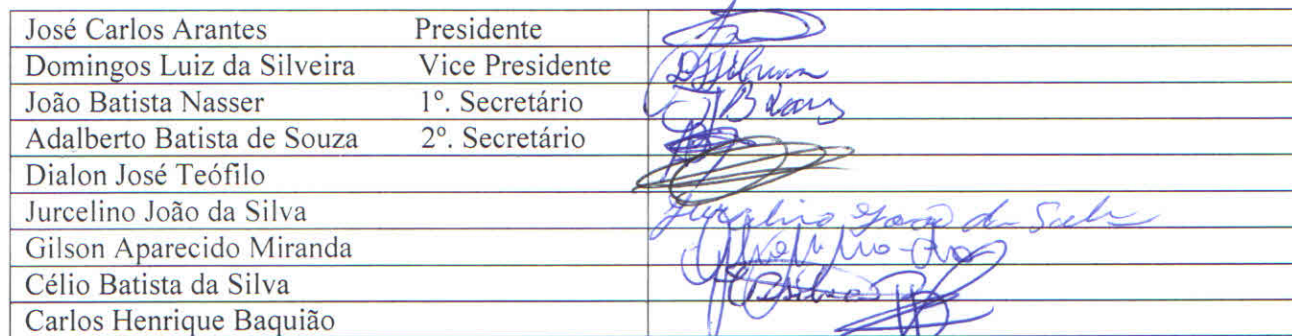 José Carlos Arantes Presidente
Domingos Luiz da Silveira Vice Presidente
João Batista Nasser 1º. Secretário
Adalberto Batista de Souza 2º. Secretário
Dialon José Teófilo
Jurcelino João da Silva Jurcelino João da Silva
Gilson Aparecido Miranda
Célio Batista da Silva
Carlos Henrique Baquião